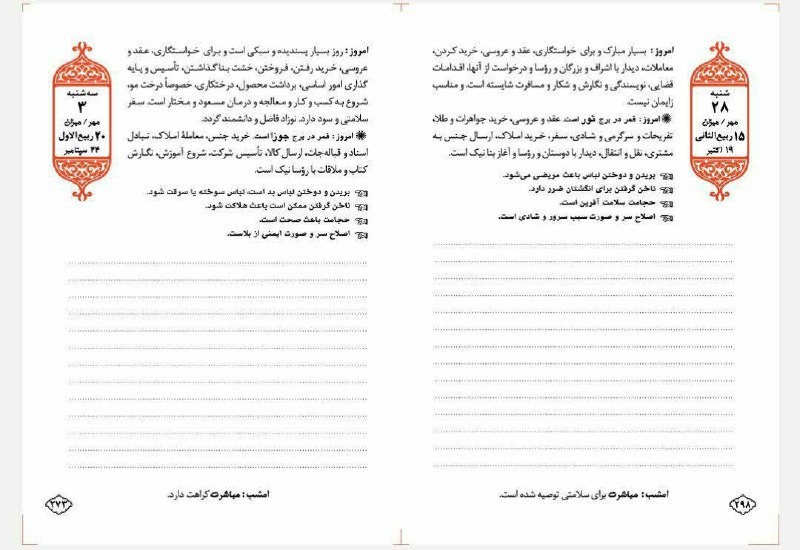 شنبه
۲۸
مهر / میزان
۱۵ ربیع‌الثانی
۱۹ اکتبر
امروز : بسیار مبارک و برای خواستگاری، عقد و عروسی، خرید کردن،
معاملات، دیدار با اشراف و بزرگان و رؤسا و درخواست از آنها، اقدامات
قضایی، نویسندگی و نگارش و شکار و مسافرت شایسته است. و مناسب
زایمان نیست.
امروز : قمر در برج ثور است. عقد و عروسی، خرید جواهرات و طلا،
تفریحات و سرگرمی و شادی، سفر، خرید املاک، ارسال جنس به
مشتری، نقل و انتقال، دیدار با دوستان و رؤسا و آغاز بنا نیک است.
بریدن و دوختن لباس باعث مریضی می‌شود.
ناخن گرفتن برای انگشتان ضرر دارد.
حجامت سلامت آفرین است.
اصلاح سر و صورت سبب سرور و شادی است.
امشب : مباشرت برای سلامتی توصیه شده است.
۲۹۸
سه شنبه
۳
مهر / میزان
۲۰ ربیع‌الاول
۲۴ سپتامبر
امروز : روز بسیار پسندیده و سبکی است و برای خواستگاری، عقد و
عروسی، خرید رفتن، فروختن، خشت بنا گذاشتن، تأسیس و پایه
گذاری امور اساسی، برداشت محصول، درختکاری، خصوصاً درخت مو،
شروع به کسب و کار و معالجه و درمان مسعود و مختار است. سفر
سلامتی و سود دارد. نوزاد فاضل و دانشمند گردد.
امروز : قمر در برج جوزا است. خرید جنس، معاملة املاک، تبادل
اسناد و قباله‌جات، ارسال کالا، تأسیس شرکت، شروع آموزش، نگارش
کتاب و ملاقات با رؤسا نیک است.
بریدن و دوختن لباس بد است، لباس سوخته یا سرقت شود.
ناخن گرفتن ممکن است باعث هلاکت شود.
حجامت باعث صحت است.
اصلاح سر و صورت ایمنی از بلاست.
امشب : مباشرت کراهت دارد.
۲۷۳